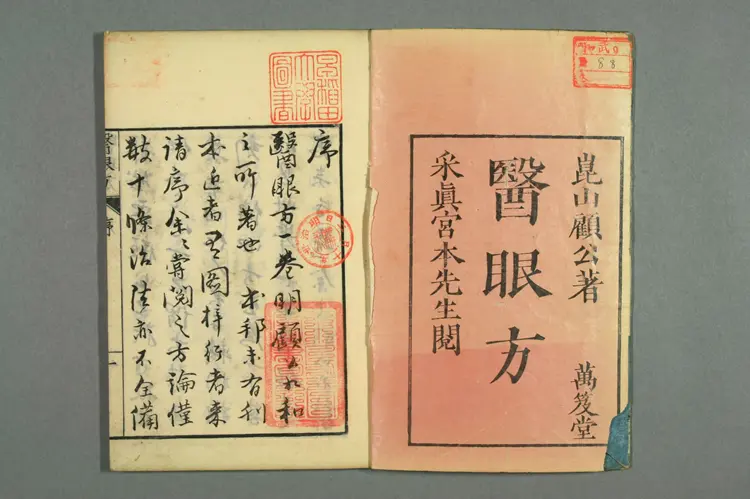 崑山顧公著
萬笈堂
醫眼方
采眞宮本先生閱
88
早稲田
大學
圖書
序
醫眼方一卷明顧公和
之所著也本邦未有刊
本近者有圖梓行者来
請序余〻嘗閲之方論僅
數十條治法亦不全備
醫眼方
序
一